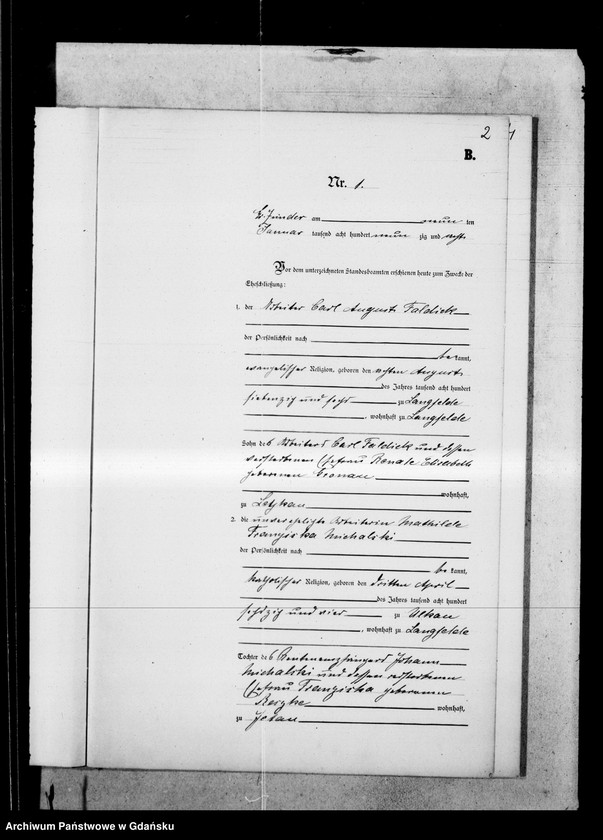 2
4
B.
Nr. 1.
Gr. Zünder am neun ten
Januar tausend acht hundert neun zig und sechs
Vor dem unterzeichneten Standesbeamten erschienen heute zum Zwecke der
Eheschließung:
1. der Arbeiter Carl August Faldick
der Persönlichkeit nach
be kannt,
evangelischer Religion, geboren den August
des Jahres tausend acht hundert
siebenzig und sechs zu Langfelde
, wohnhaft zu Langfelde
Sohn des Arbeiters Carl Faldick und dessen
verstorbenen Ehefrau Renate Elisabeth
geborenen Gronau
wohnhaft,
zu Letzkau
2. die unverehelichte Arbeiterin Mathilde
Franziska Michalski
der Persönlichkeit nach
be kannt,
katholischer Religion, geboren den dritten April
des Jahres tausend acht hundert
sechzig und vier zu
, wohnhaft zu Langfelde
Tochter des Rentenempfängers Johann
Michalski und dessen verstorbenen
Ehefrau Franziska geborenen
wohnhaft,
zu
Archiwum Państwowe w Gdańsku